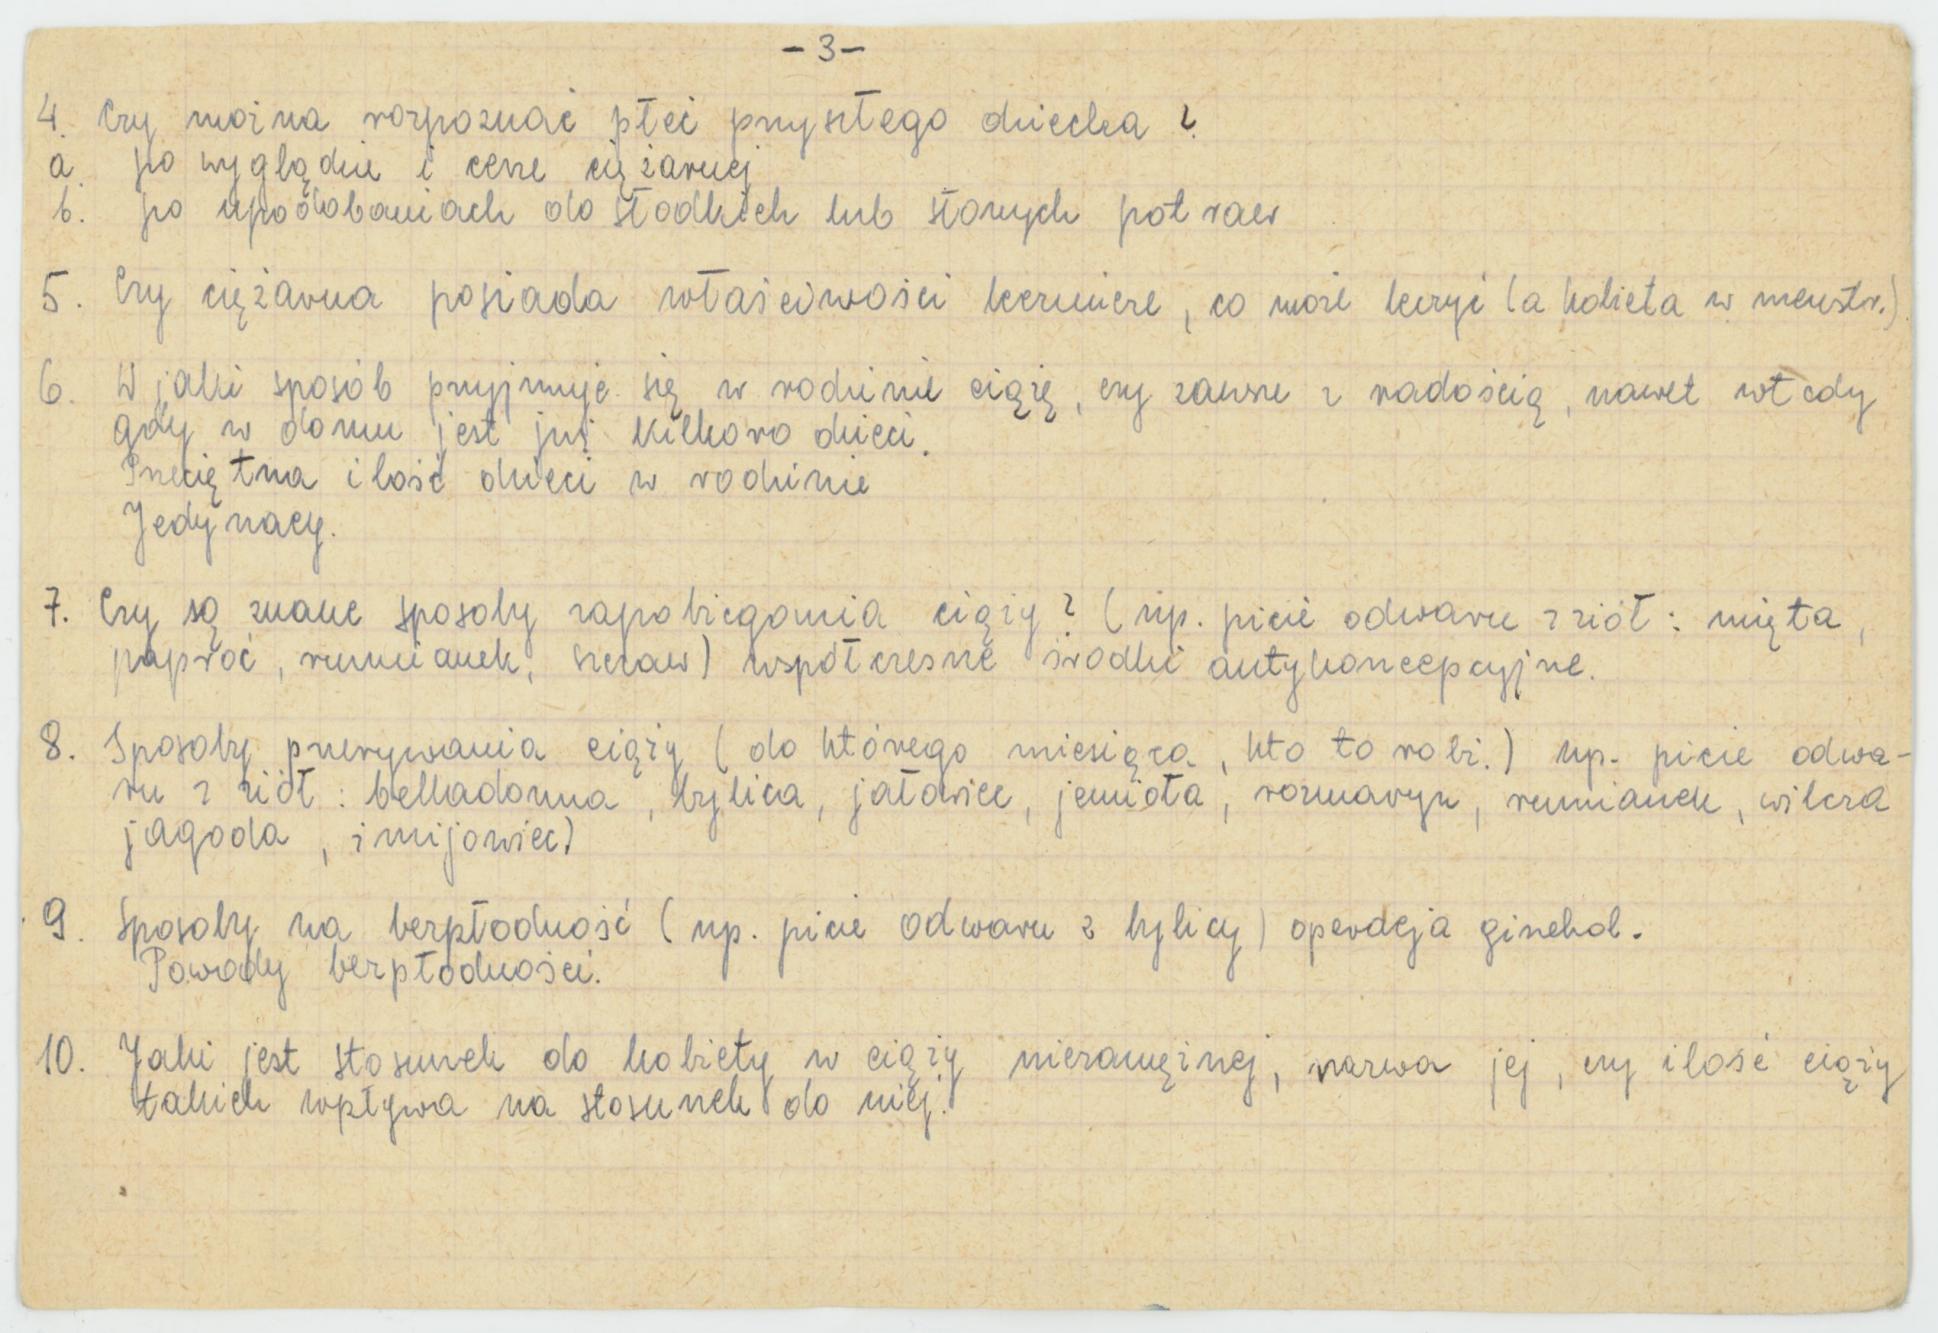 -3-
4. Czy można rozpoznać płeć przyszłego dziecka ?
a. po wyglądzie i cerze ciężarnej
b. po upodobaniach do słodkich lub słonych potraw
5. Czy ciężarna posiada właściwości lecznicze, co może leczyć (a kobieta w menstr.)
6. W jaki sposób przyjmuje się w rodzinie ciążę, czy zawsze z radością, nawet wtedy
gdy w domu jest już kilkoro dzieci.
Przeciętna ilość dzieci w rodzinie
Jedynacy.
7. Czy są znane sposoby zapobiegania ciąży ? (np. picie odwaru z ziół : mięta,
paproć, rumianek, szczaw) współczesne środki antykoncepcyjne.
8. Sposoby przerywania ciąży (do którego miesiąca, kto to robi.) np. picie odwa-
ru z ziół : belladonna, bylica, jałowiec, jemioła, rozmaryn, rumianek, wilcza
jagoda, żmijowiec)
9. Sposoby na bezpłodność (np. picie odwaru z bylicy) operacja ginekol.
Powody bezpłodności.
10. Jaki jest stosunek do kobiety w ciąży niezamężnej, nazwa jej, czy ilość ciąży
takich wpływa na stosunek do niej.